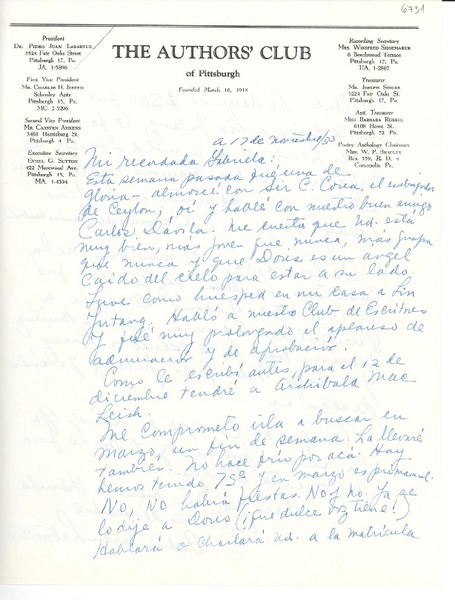 6731
President
Dr. Pedro Juan Labarthe
5524 Fair Oaks Street
Pittsburgh 17, Pa.
JA. 1-5896
First Vice President
Mr. Charles H. Joseph
Schenley Apts
Pittsburgh 13, Pa.
MU. 2-5296
Second Vice President
Mr. Carsten Ahrens
Pittsburgh 4, Pa.
Executive Secretary
Ethel G. Sutton
Pittsburgh 15, Pa.
MA. 1-4304
THE AUTHORS' CLUB
of Pittsburgh
Founded March 16, 1918
Recording Secretary
Mrs. Winifred Shoemaker
6 Beechwood Terrace
Pittsburgh 17, Pa.
HA. 1-2807
Treasurer
Mr. Joseph Singer
5224 Fair Oaks St.
Pittsburgh 17, Pa.
Asst. Treasurer
Miss Barbara Russel
6108 Howe St.
Pittsburgh 32, Pa.
Poetry Anthology Chairman
Mrs. W. P. Shepley
Box 359, R. D. 4
Coraopolis, Pa.
a 17 de noviembre/53
Mi recordada Gabriela:
Esta semana pasada fué una de
gloria - almorcé con Sir C. Corea, el embajador
de Ceylon, oí y hablé con nuestro buen amigo
Carlos Dávila. Me cuenta que Ud. está
muy bien, más joven que nunca, más guapa
que nunca y que Doris es un angel
caido del cielo para estar a su lado.
Tuve como huesped en mi casa a Lin
Yutang. Habló a nuestro Club de Escritores
y fué muy prolongado el aplauso de
admiración y de aprobación.
Como le escribí antes, para el 12 de
diciembre tendré a Archibald Mac
Leish.
Me comprometo irla a buscar en
marzo, un fin de semana. La llevaré
tambien. No hace frío por acá. Hoy
hemos tenido 75° y en marzo es primaveral.
No, no habrá fiestas. No y no. Ya se
lo dije a Doris (¡qué dulce voz tiene!)
Hablará o charlará Ud. a la matrícula